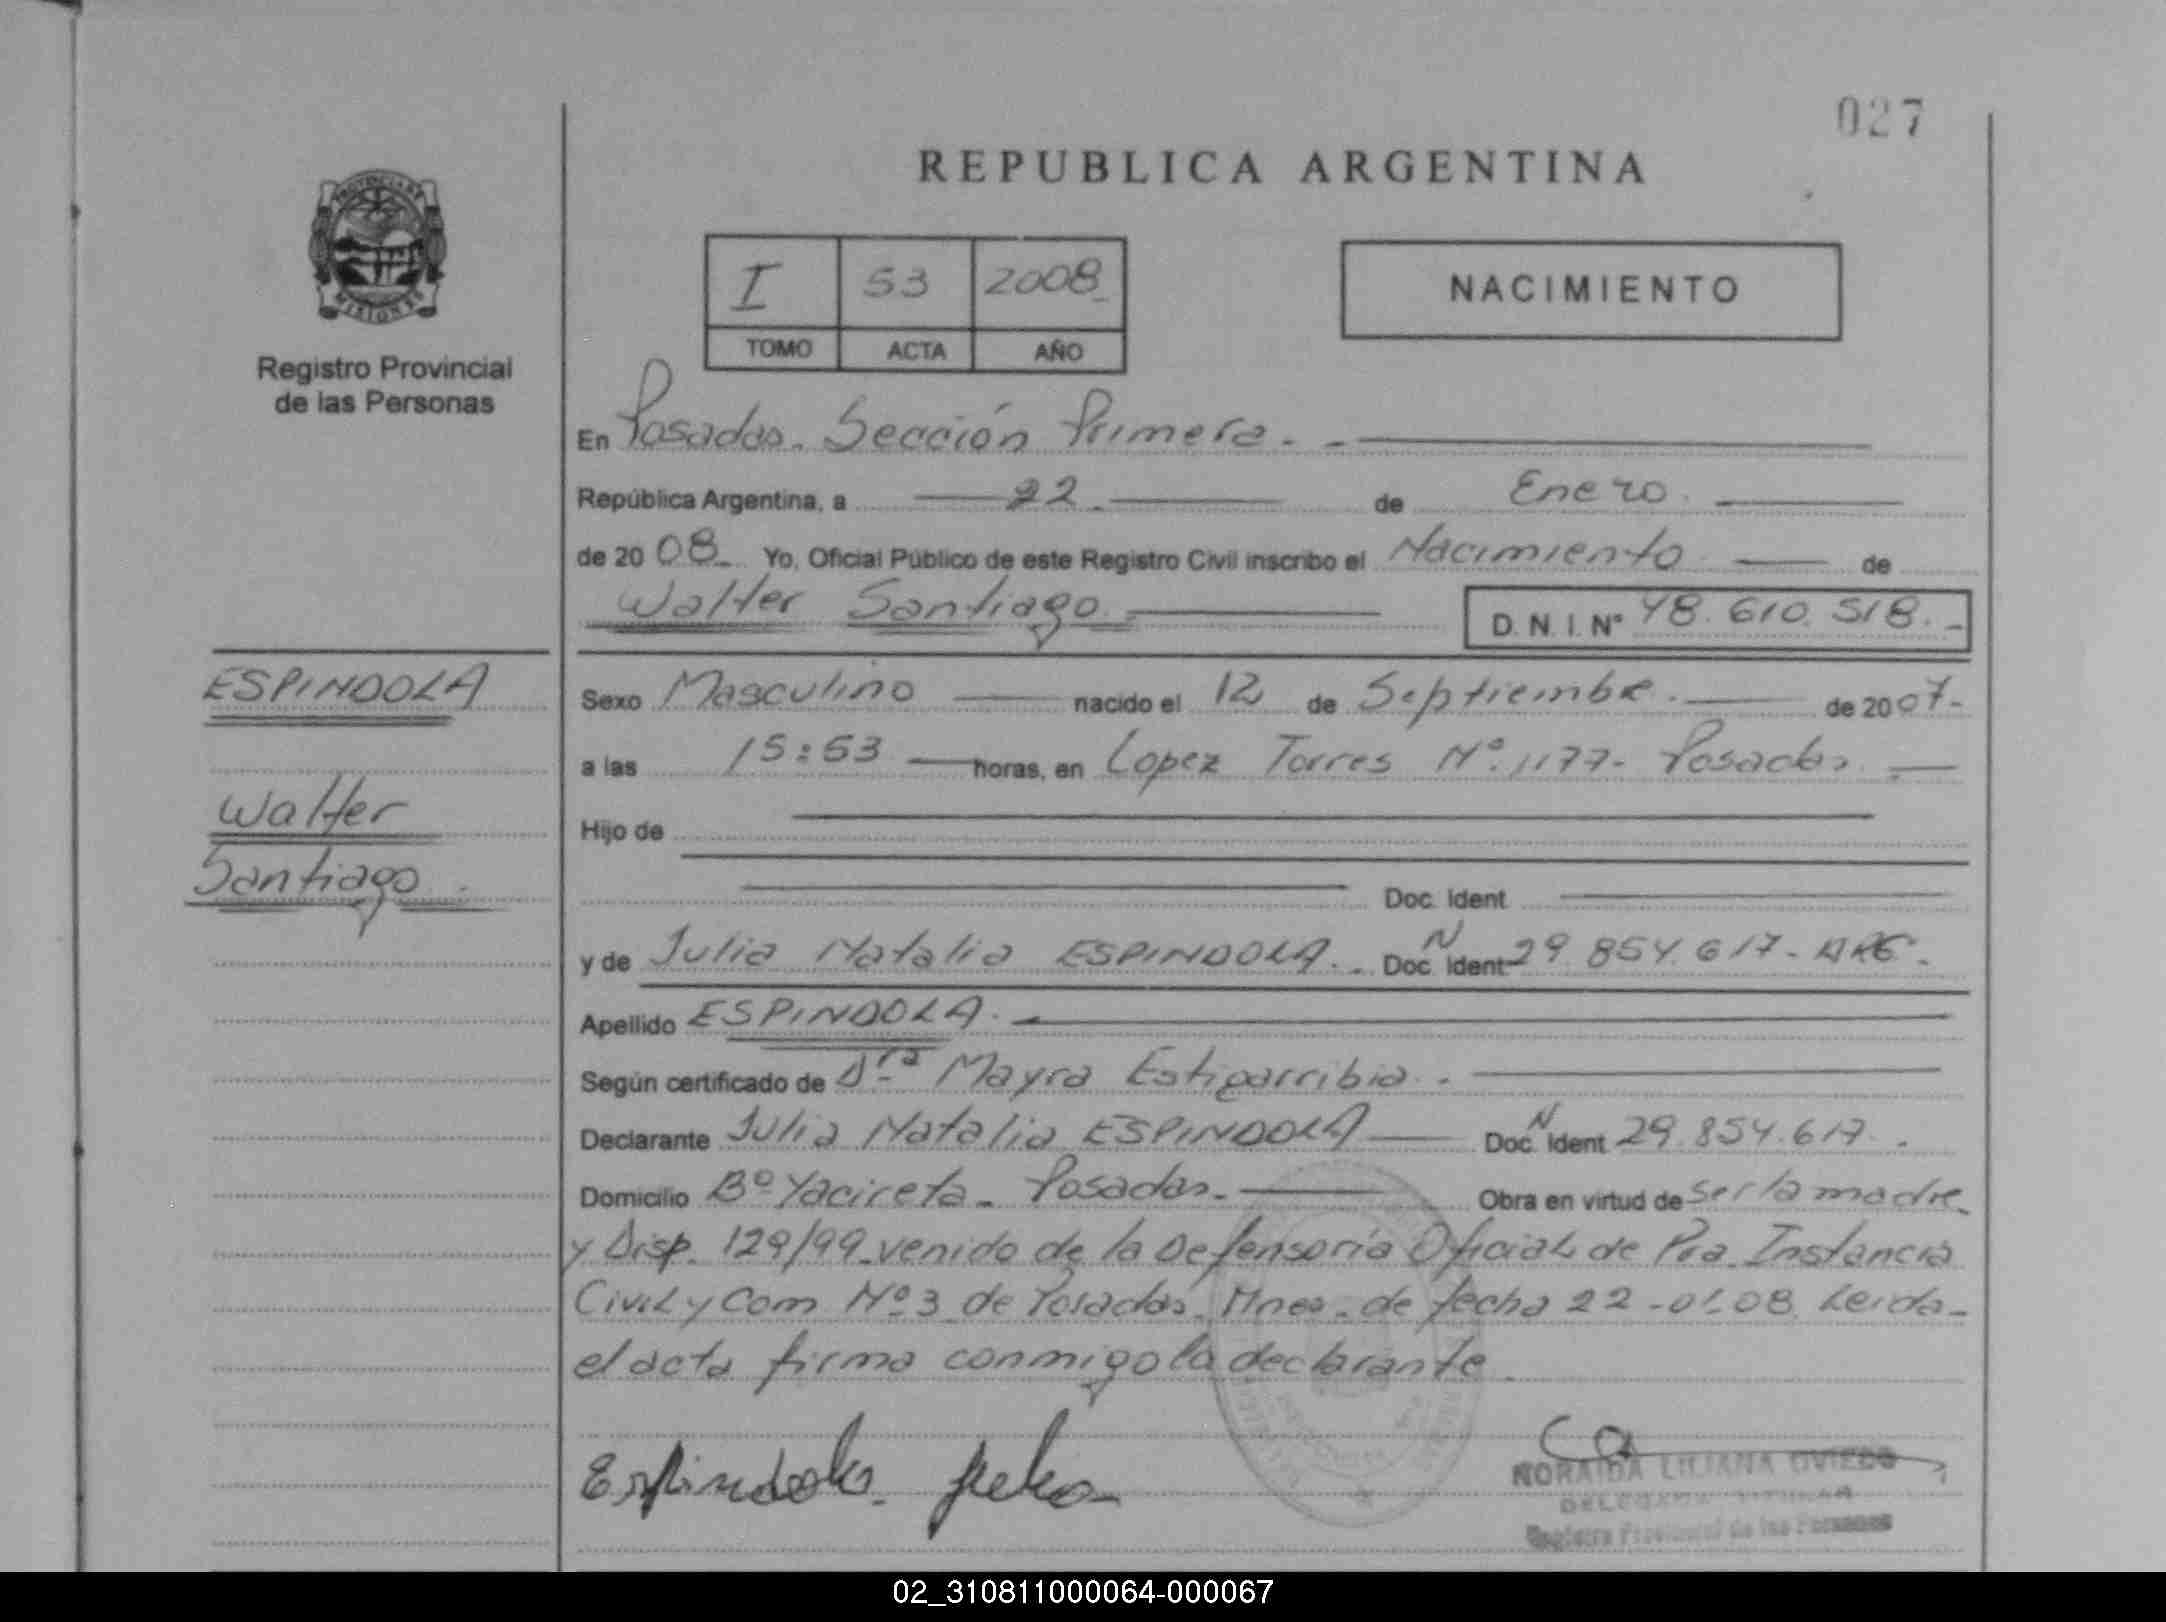 027
REPUBLICA ARGENTINA
PROVINCIA DE
MISIONES
Registro Provincial
de las Personas
I 53 2008
TOMO ACTA AÑO
NACIMIENTO
En Posadas. Sección Primera.
República Argentina, a 22 de Enero
de 2008 Yo, Oficial Público de este Registro Civil inscribo el Nacimiento de
Walter Santiago. D. N. I. Nº 48.610.518.
ESPINDOLA
Walter
Santiago.
Sexo Masculino nacido el 12 de Septiembre. de 2007-
a las 15:53 horas, en Lopez Torres Nº 1177- Posadas.
Hijo de
Doc. Ident.
y de Julia Natalia ESPINDOLA. Doc. N Ident 29.854.617- ARG.
Apellido ESPINDOLA.
Según certificado de Dra Mayra Estigarribia.
Declarante Julia Natalia ESPINDOLA Doc. N Ident 29.854.617.
Domicilio Bº Yacireta- Posadas. Obra en virtud de ser la madre
y Disp. 129/99 venido de la Defensoría Oficial de Pra Instancia
Civil y Com Nº 3 de Posadas. Mnes. de fecha 22-01-08. Leida
el acta firma conmigo la declarante.
Espindola Julia
NORAIDA LILIANA OVIEDO
DELEGADA TITULAR
Registro Provincial de las Personas
02_310811000064-000067